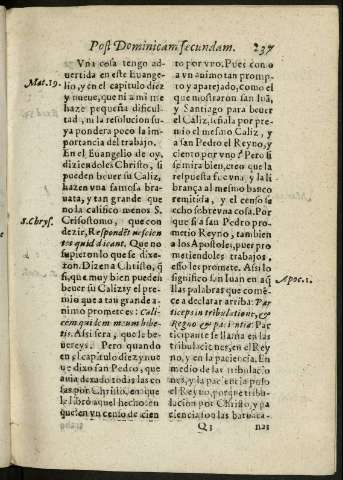 Post Dominicam secundam. 237
Mat. 19.
Vna cosa tengo ad-
uertida en este Euange-
lio, y en el capitulo diez
y nueue, que ni a mi me
haze pequeña dificul-
tad, ni la resolucion su-
ya pondera poco la im-
portancia del trabajo.
En el Euangelio de oy,
diziendoles Christo, si
pueden beuer su Caliz,
hazen vna famosa bra-
uata, y tan grande que
no la califico menos S.
S. Chrys.
Crisostomo, que con
dezir, Respondēt nescien
tes quid dicant. Que no
supieron lo que se dixe-
ron. Dizena Christo, q̃
si, que muy bien pueden
beuer su Caliz, y el pre-
mio que a tan grande a-
nimo promete es: Cali-
cem quidem meum bibe-
tis. Assi sera, que le be-
uereys. Pero quando
en el capitulo diez y nue
ue dixo san Pedro, que
auia dexado todas las co
sas por Christo, en que
le libró aquel hecho: en
que? en vn censo de cien
to por vno. Pues con o
a vn animo tan promp-
to y aparejado, como el
que mostraron san Iuã,
y Santiago para beuer
el Caliz, señala por pre-
mio el mesmo Caliz, y
a san Pedro el Reyno, y
ciento por vno? Pero si
se mira bien, creo que la
respuesta fue vna, y la li
brança al mesmo banco
remitida, y el censo su
echo sobre vna cosa. Por
que si a san Pedro pro-
metio Reyno, tambien
a los Apostoles, pues pro
metiendoles trabajos,
esso les promete. Assi lo
Apoc. 1.
significò san Iuan en aq̃
llas palabras que comẽ-
ce a declarar arriba: Par
ticeps in tribulatione, &
Regno & patientia: Par
ticipante se llama en las
tribulaciones, en el Rey
no, y en la paciencia. En
medio de las tribulacio
nes, y la paciencia puso
el Reyno, porque tribu-
lacion por Christo, y pa
ciencia son las barata-
Q 3 nas